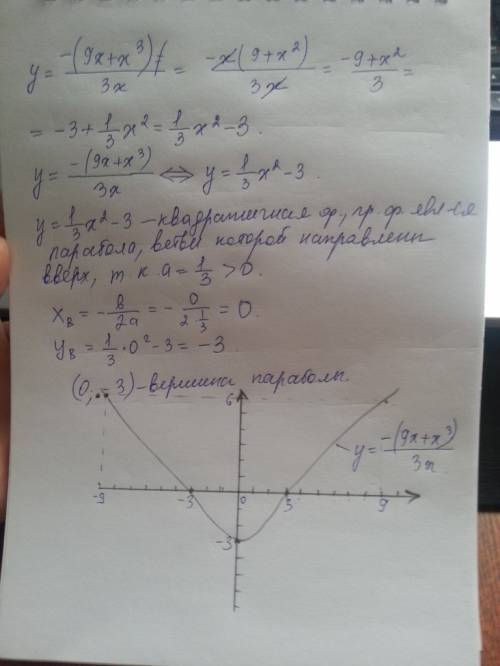 y = -(9x+x³)/3x = -x(9+x²)/3x = -9+x²/3 =
= -3+1/3x² = 1/3x²-3.
y = -(9x+x³)/3x ⇔ y = 1/3x²-3.
y = 1/3x²-3 – квадратичная ф., гр. ф. явл-ся
парабола, ветви которой направлены
вверх, т к a = 1/3 > 0.
xв = -в/2a = -0/2 1/3 = 0.
yв = 1/3·0²-3 = -3.
(0, -3) - вершина параболы.
6
y = -(9x+x³)/3x
-9 -3 0 3 9
-3